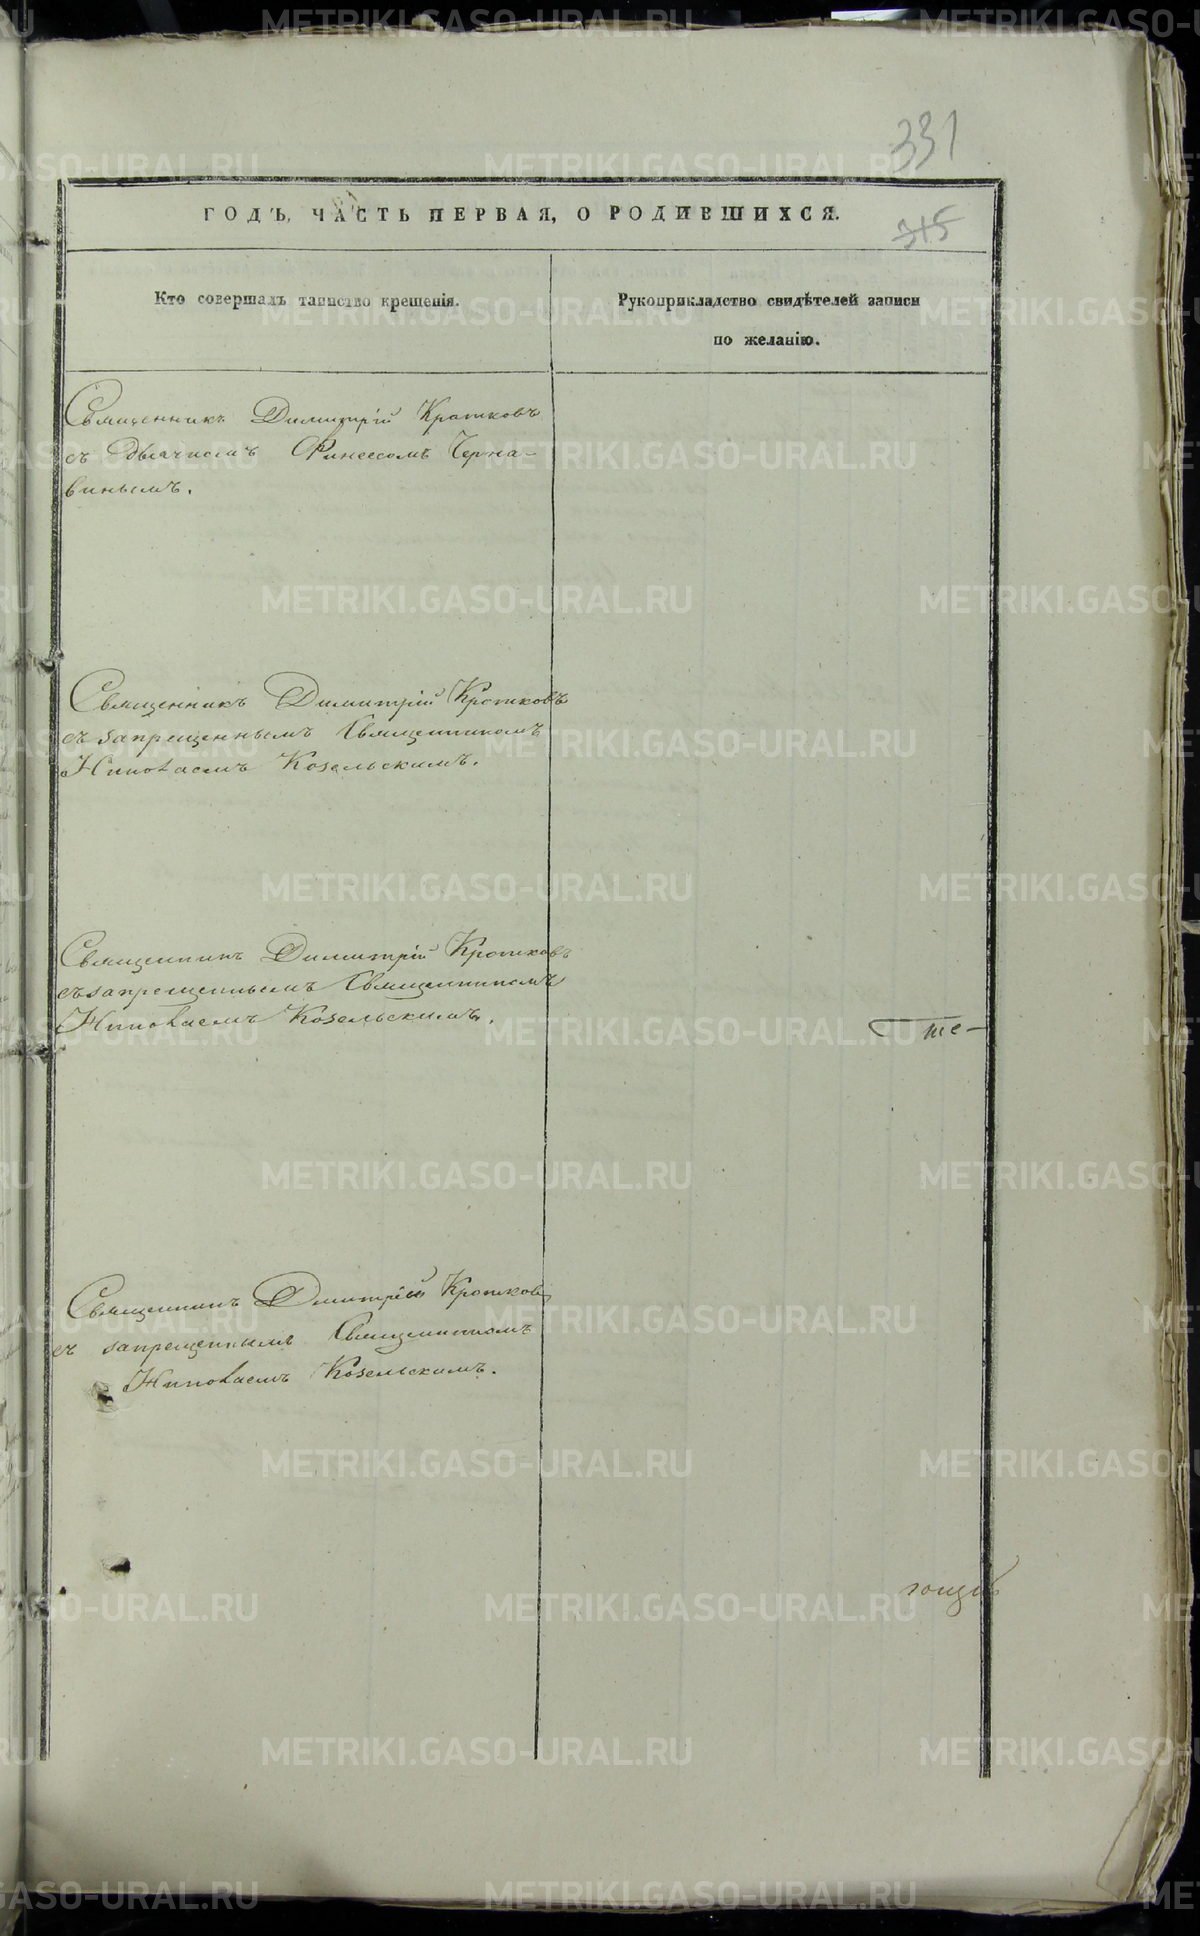 331
ГОДЪ, ЧАСТЬ ПЕРВАЯ, О РОДИВШИХСЯ.
315
Кто совершалъ таинство крещенія.
Рукоприкладство свидѣтелей записи
по желанію.
Священникъ Димитрій Кротковъ
съ Дьячкомъ Финеесомъ Черна-
винымъ.
Священникъ Димитрій Кротковъ
съ запрещеннымъ Священникомъ
Николаемъ Козельскимъ.
Священникъ Димитрій Кротковъ
съ запрещеннымъ Священникомъ
Николаемъ Козельскимъ.
Священникъ Димитрій Кротковъ
съ запрещеннымъ Священникомъ
Николаемъ Козельскимъ.
METRIKI.GASO-URAL.RU